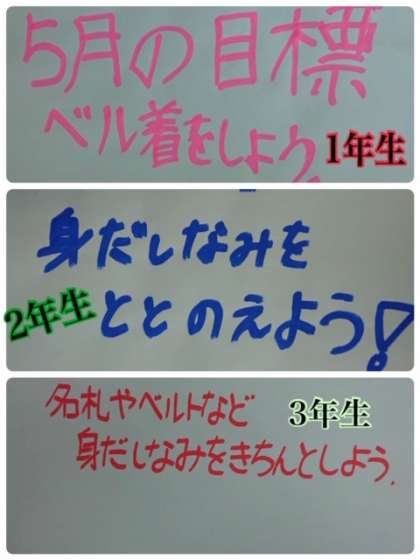 5月の目標
ベル着をしよう
1年生
身だしなみを
2年生
ととのえよう!
名札やベルトなど
3年生
身だしなみをきちんとしよう.